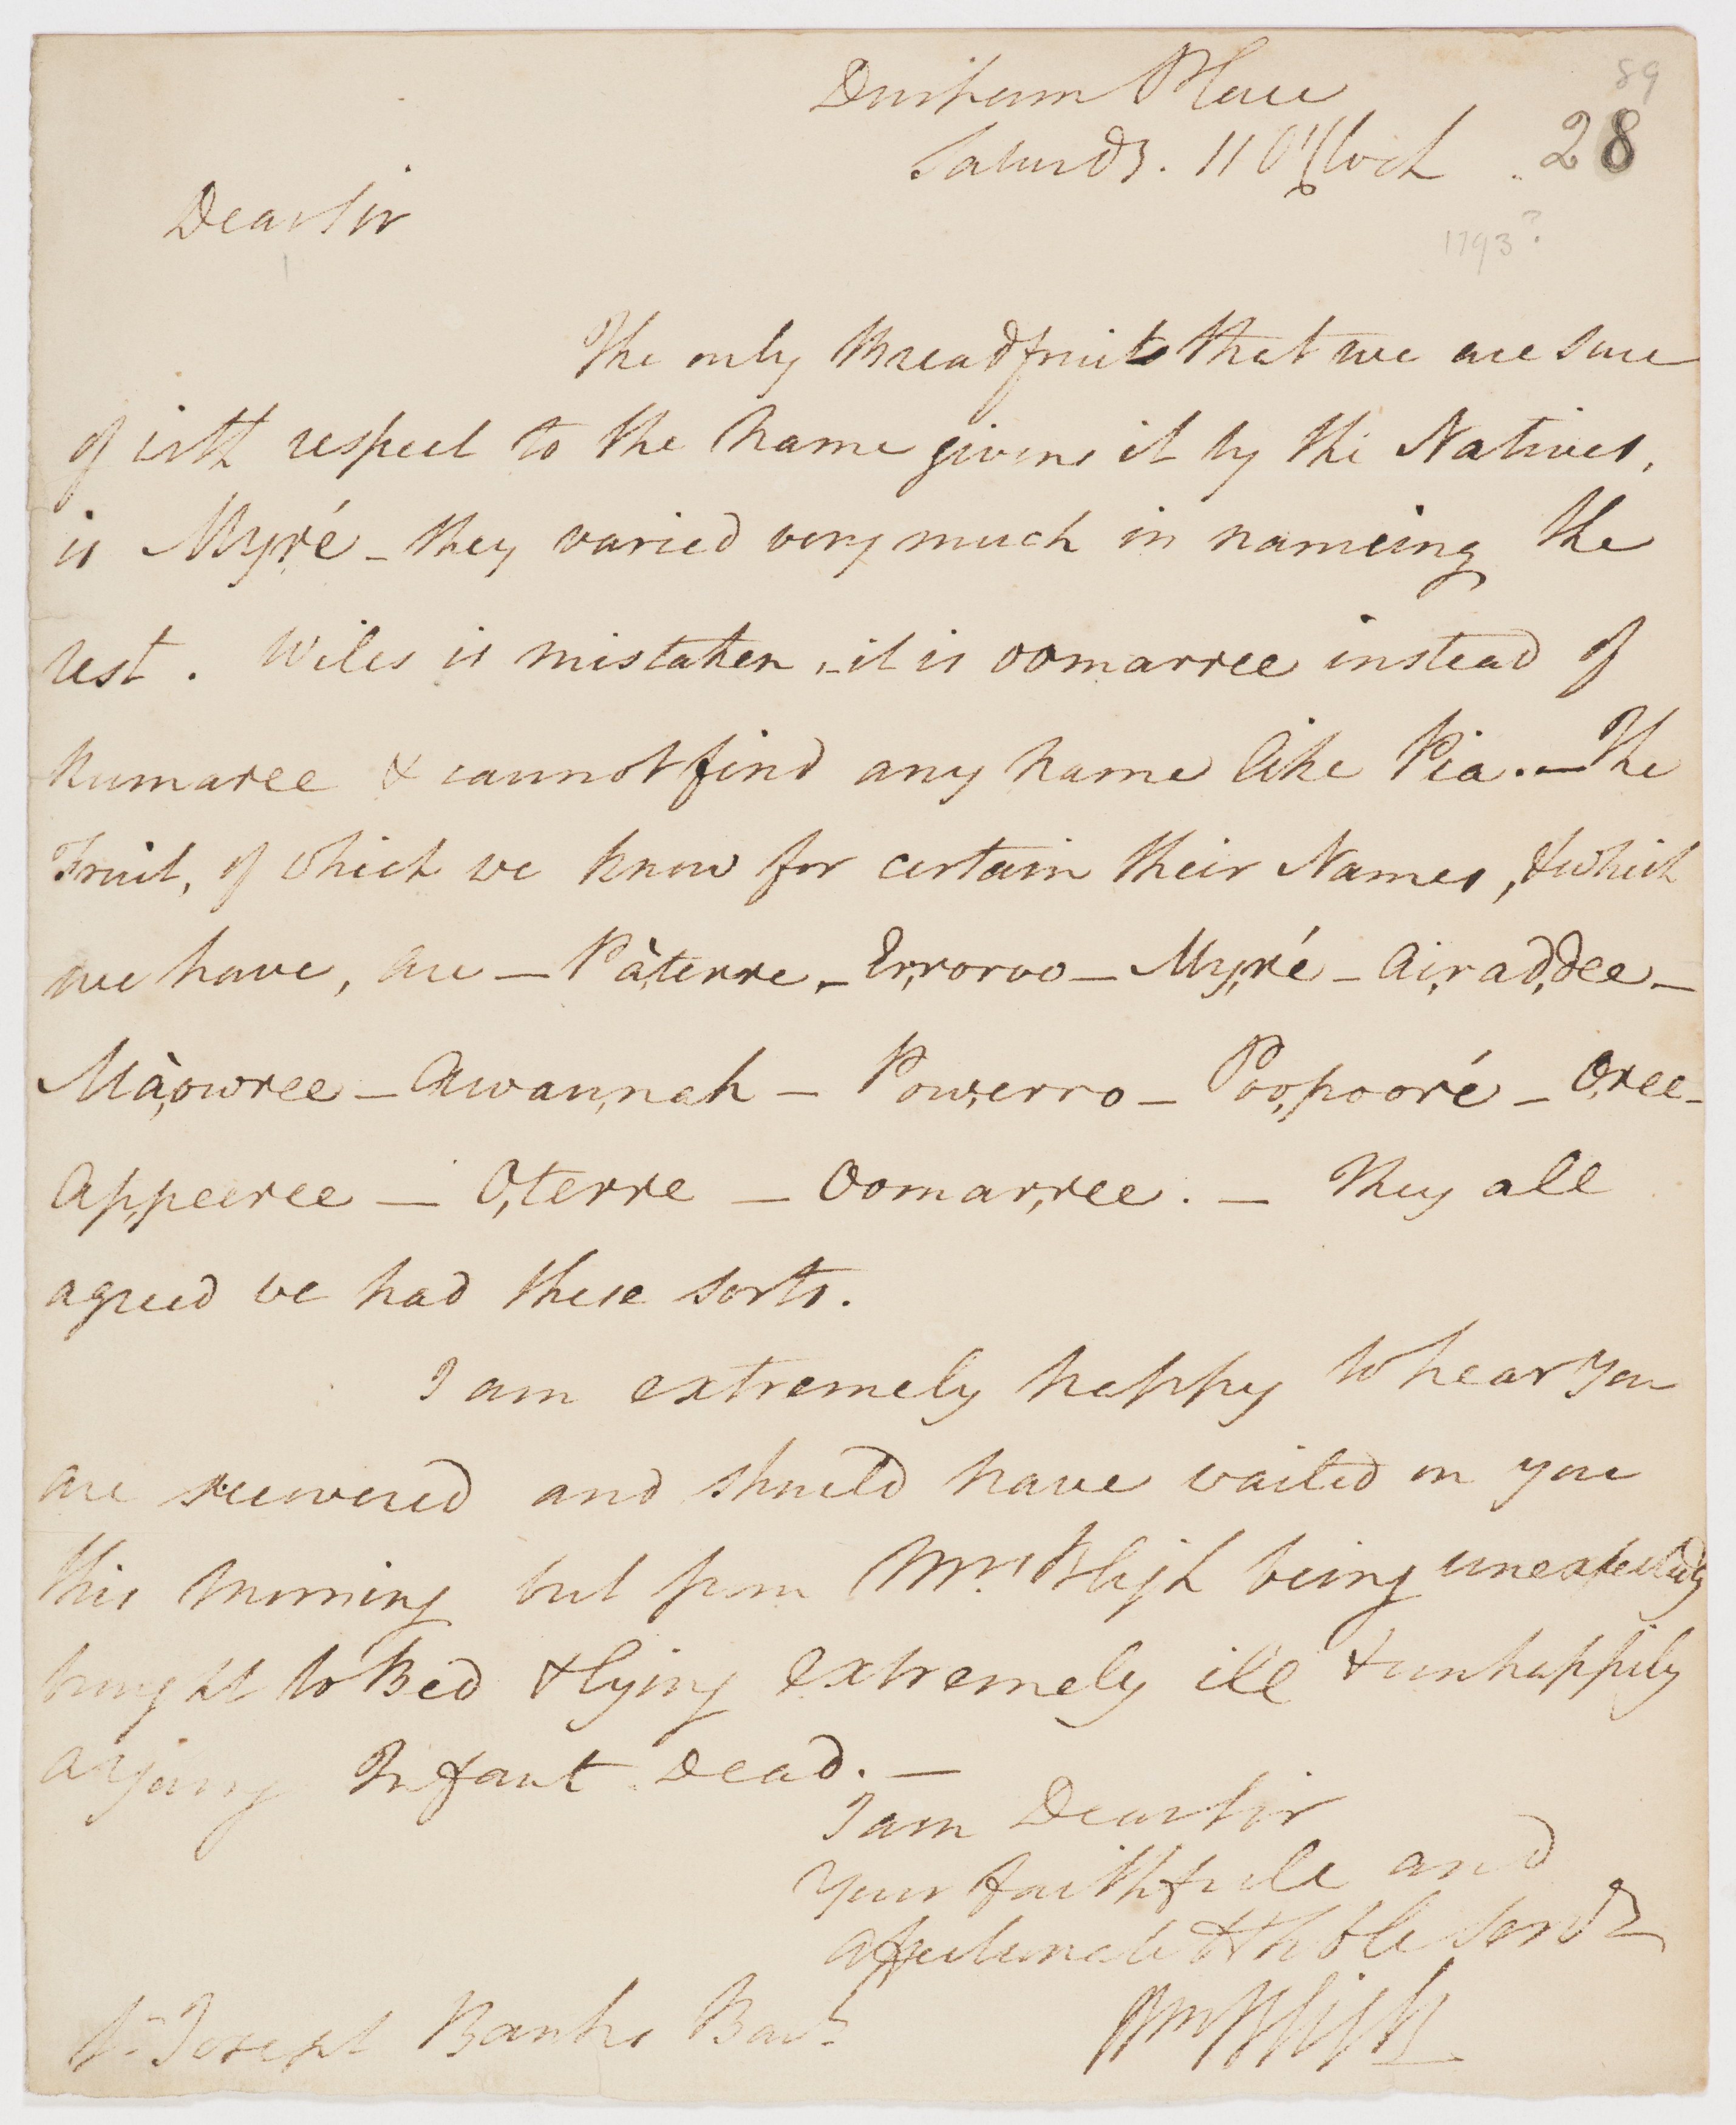 Durham Place
89
Saturdy. 11 O'Clock
28
Dear Sir
1793?
The only Breadfruits that we are sure
of with respect to the name given it by the Natives,
is Myré - they varied very much in nameing the
rest. Wiles is mistaken, - it is oomarree instead of
kumaree & cannot find any name like Pia. - The
Fruit, of which we know for certain their Names, & which
we have, are — Pà,terre - Er,roroo — My,ré - Ai,rad,dee -
Mà,owree - Awan,nah - Pow,erro - Poo,pooré - O,ree -
Ap,peeree — O,terre — Oomar,ree. — They all
agreed we had these sorts.
I am extremely happy to hear you
are recovered and should have waited on you
this morning but from Mrs. Bligh being unexpectedly
brought to Bed & lying extremely ill & unhappily
a young Infant Dead. —
I am Dear Sir
Your faithfull and
affectionate & hble servt
Wm Bligh
Sr Joseph Banks Bart